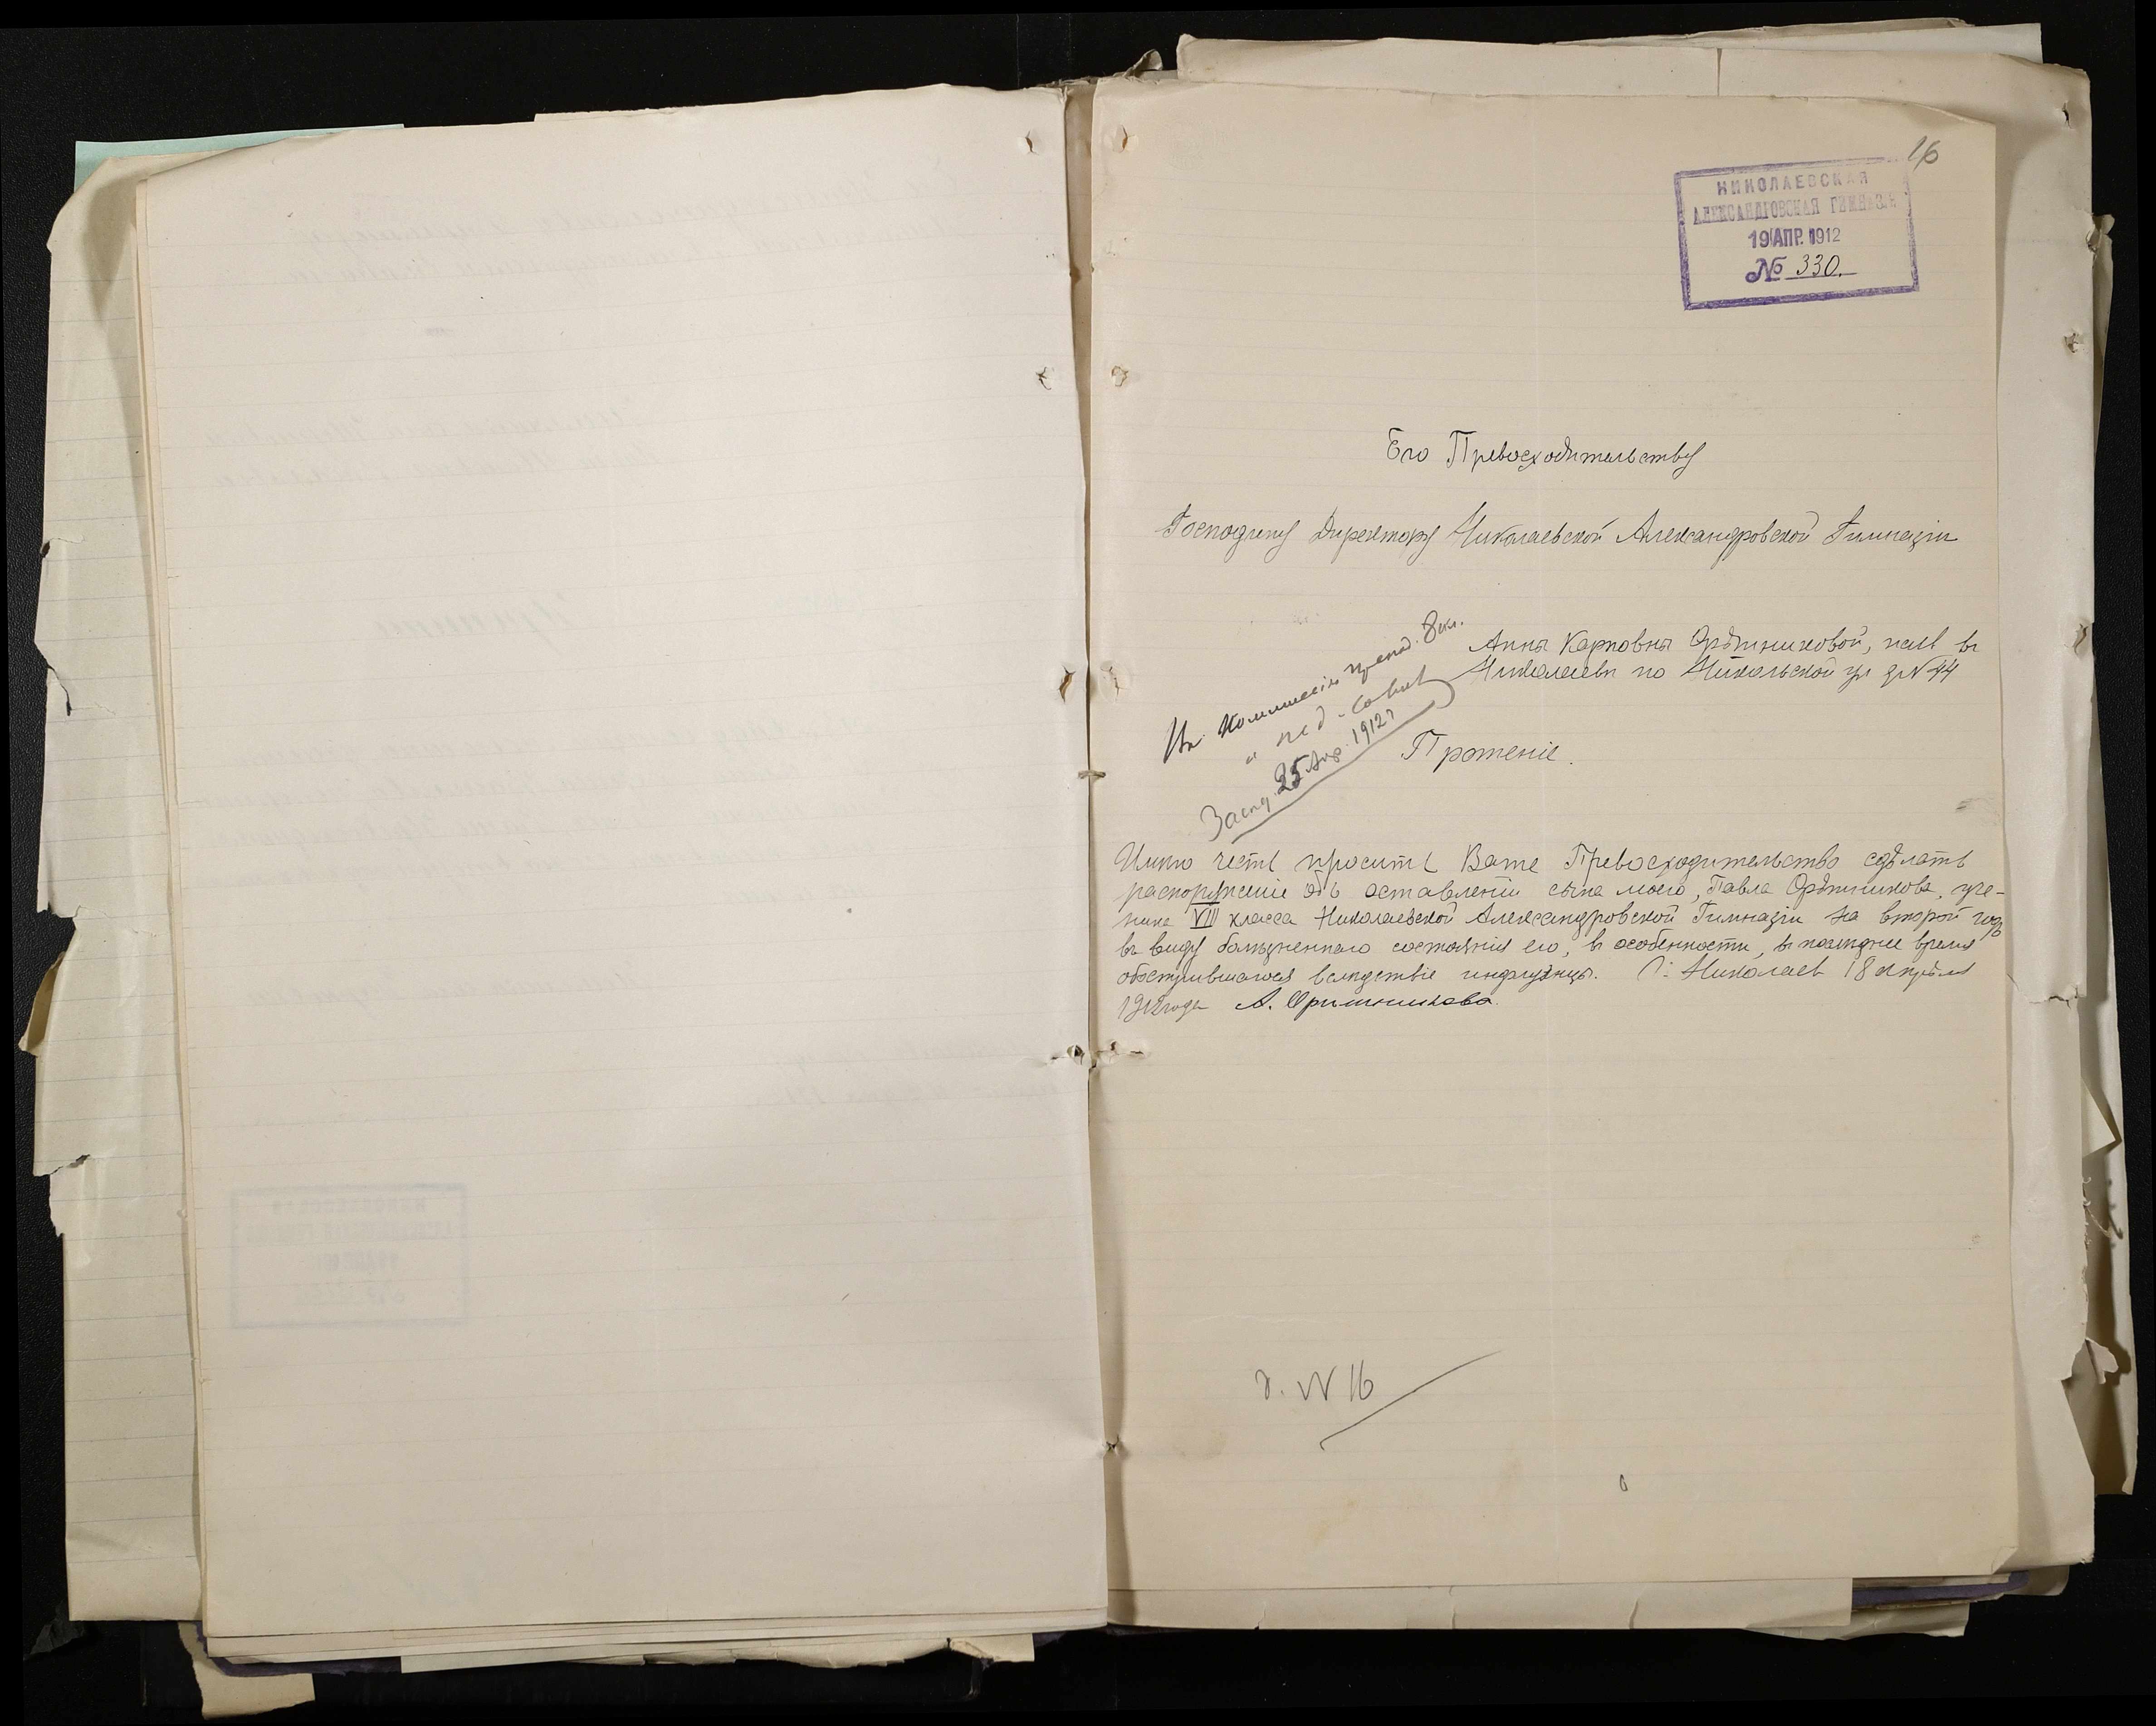 16
НИКОЛАЕВСКАЯ
АЛЕКСАНДРОВСКАЯ ГИМНАЗІЯ
19 АПР. 1912
№ 330.
Его Превосходительству
Господину Директору Николаевской Александровской Гимназіи
Анны Карповны Орѣшниковой, въ
Николаевѣ по Никольской ул д № 44
Въ Коммиссію препод. 8 кл.
и пед. Совѣт
Засѣд. 25 Апр. 1912 г
Прошеніе.
Имѣю честь просить Ваше Превосходительство сдѣлать
распоряженіе объ оставленіи сына моего, Павла Орѣшникова, уче-
ника VIII класса Николаевской Александровской Гимназіи на второй годъ
въ виду болѣзненнаго состоянія его, въ особенности, въ послѣднее время
обострившагося вслѣдствіе инфлуэнцы. Г. Николаев 18 апрѣля
1912 года А. Орѣшникова.
д. № 16